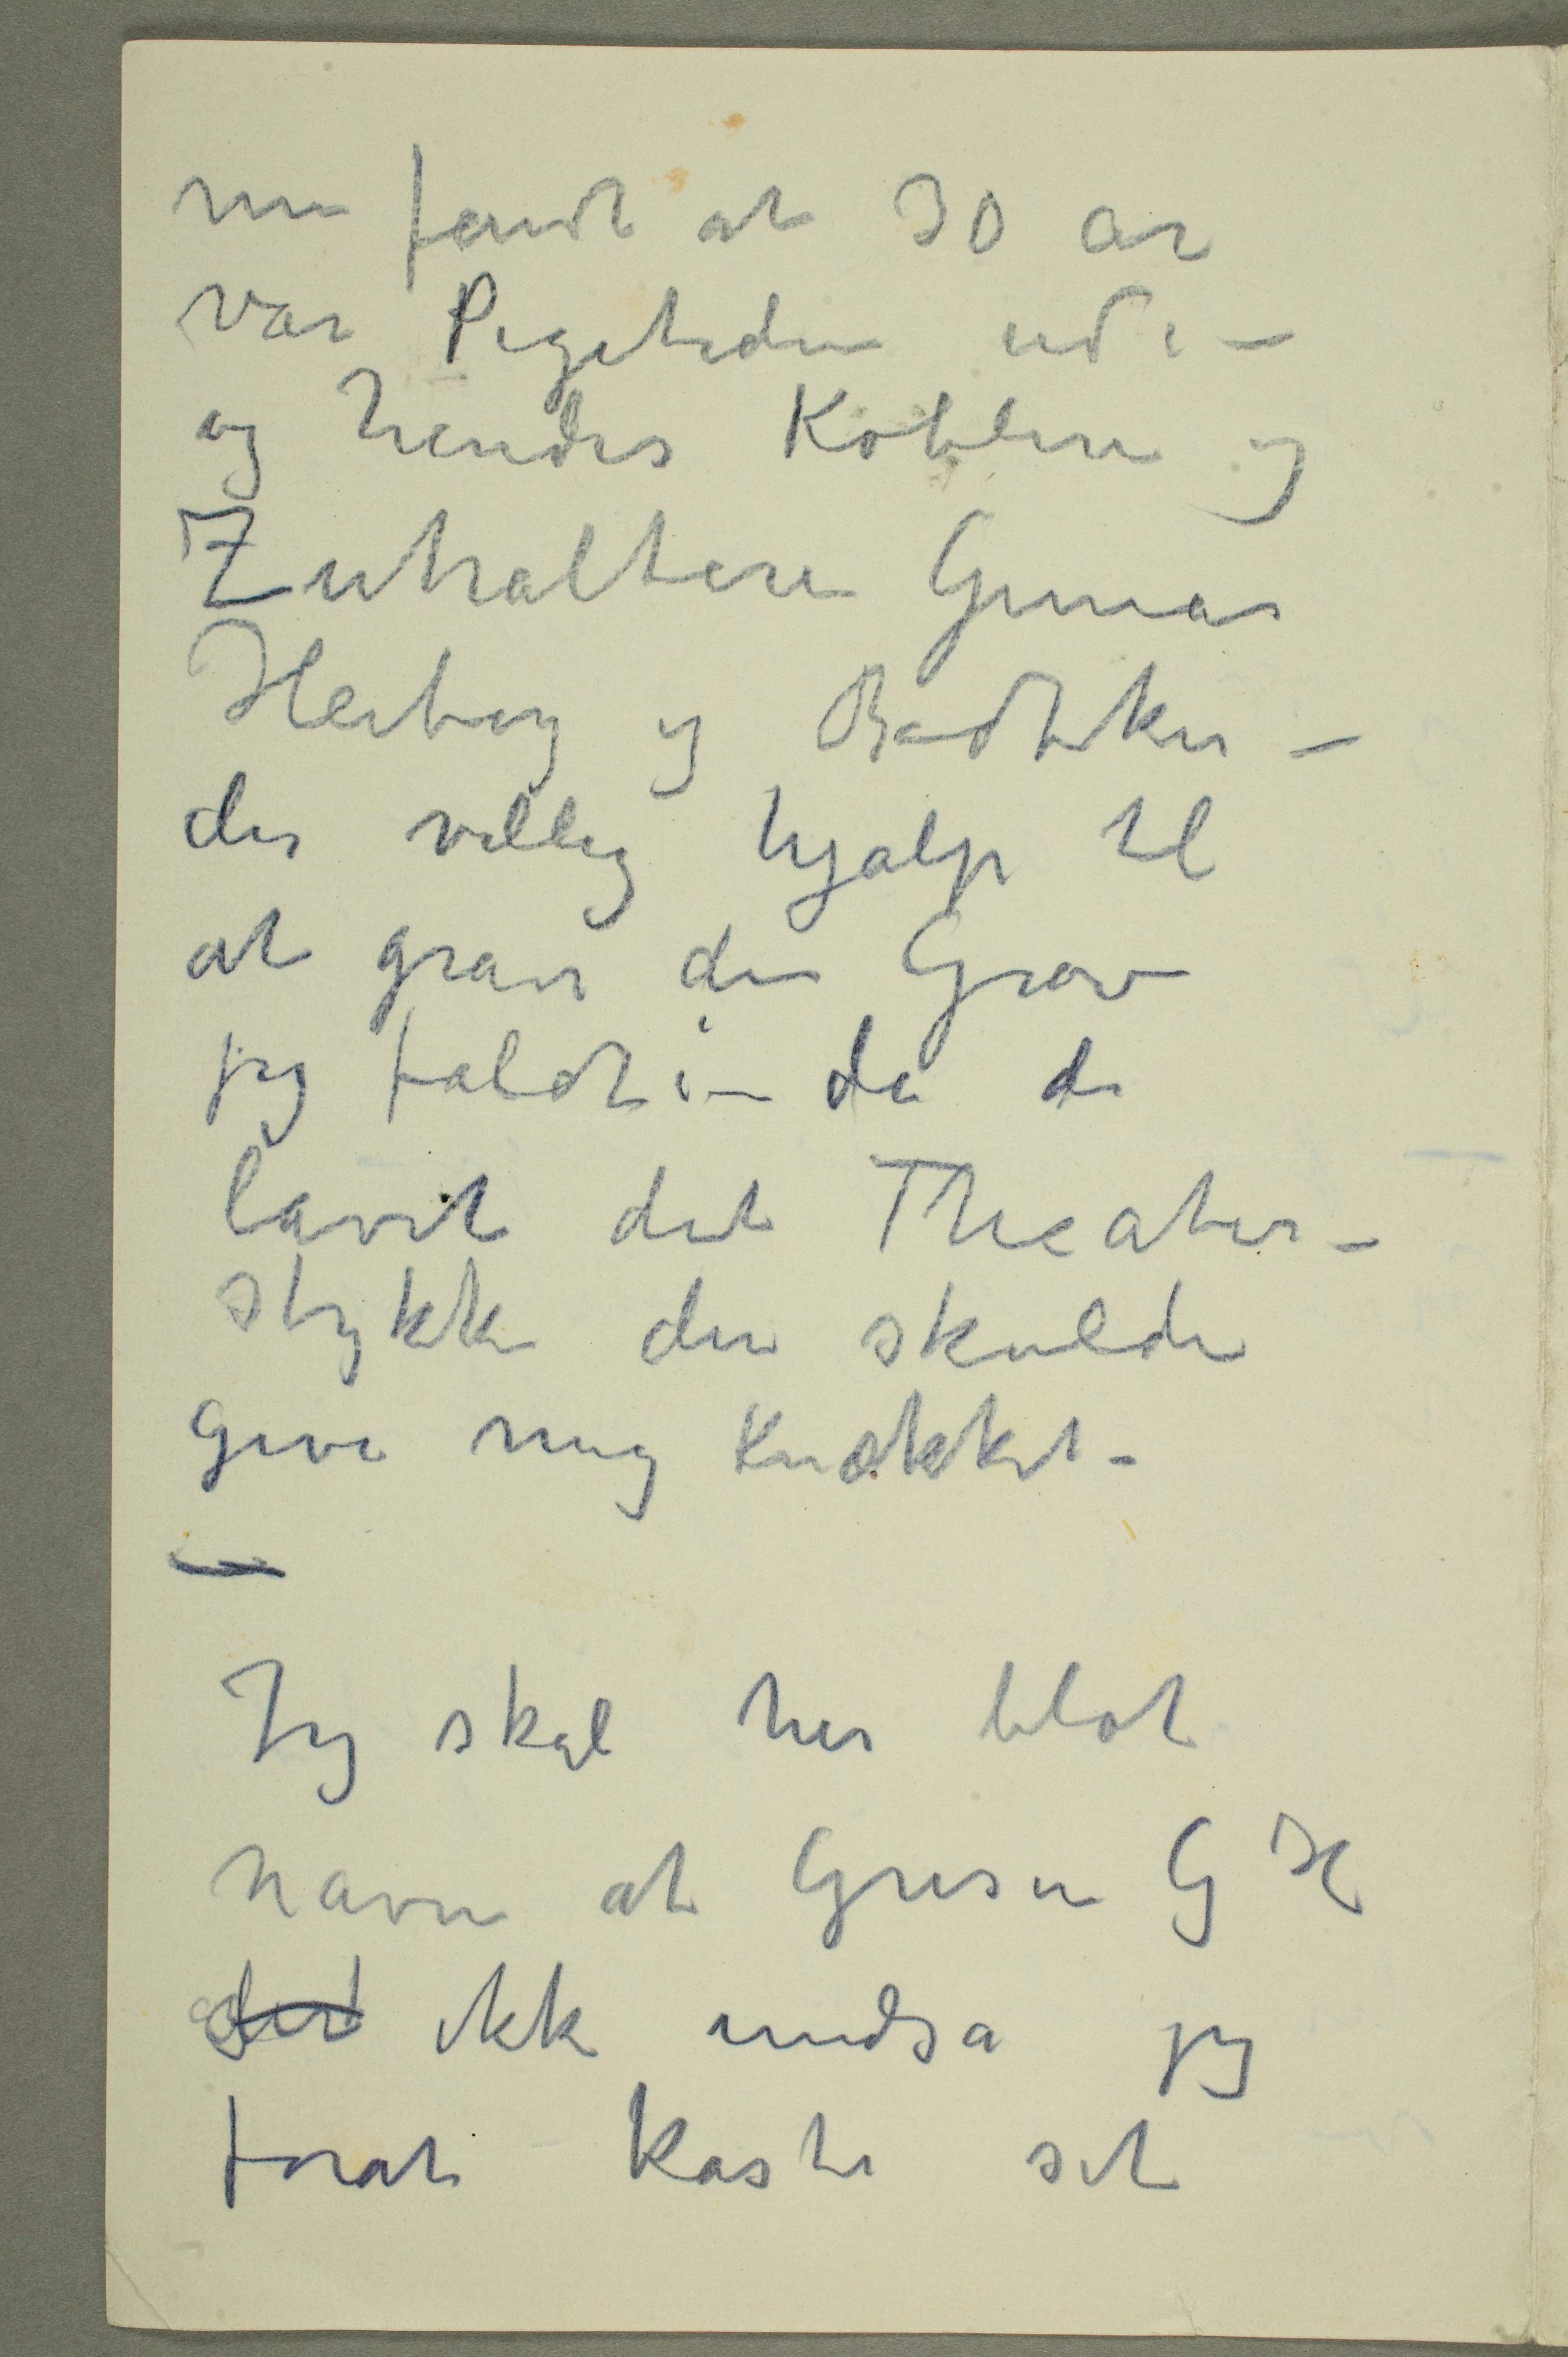 nu fandt at 30 år
var Pigetiden ude –
og hendes Koblere og
Zuhaltere Gunnar
Heiberg og Bødtker –
der villig hjalp til
at grave den Grav
jeg faldt i – da de
lavet det Theater-
stykke der skulde
give mig Knækket –
—
Jeg skal her blot
nævne at Grisen G H
ikke undså sig
for at kaste sit